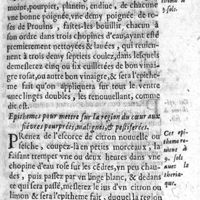 moine, pourpier, plantin, endiue, de chacune
vne bonne poignée, vne demy poignée de ro-
ses de Prouins, faites-les bouillir chacun à
son ordre dans trois chopines d'eau, ayant esté
premierement nettoyées & lauées, qui reulen-
t à trois demy septiers coulez, dans lesquels
demeslerez cinq ou six cuillerées de bon vinai-
gre rosat, ou autre bon vinaigre, & sera l'epithe-
me fait qu'on appliquera sur tout le ventre
auec linges doubles, les renouuellant, comme
dit est.
Epithemes pour mettre sur la region du cœur aux
fiéures pourprées, malignes, & pestiferées.
PRenez de l'escorce de citron nouuelle ou
seiche, coupez-la en petits morceaux, la
faisant tremper vne ou deux heures dans vne
chopine d'eau rose sur les cédres, vn peu chau-
des, puis passez par vn linge blanc, & dedans
ce qui sera passé, meslerez le ius d'vn citron ou
limon & sera l'epitheme fait, duquel on
9. sols
Cet epi-
theme re-
uient à
9. sols
auec la
theria-
que.